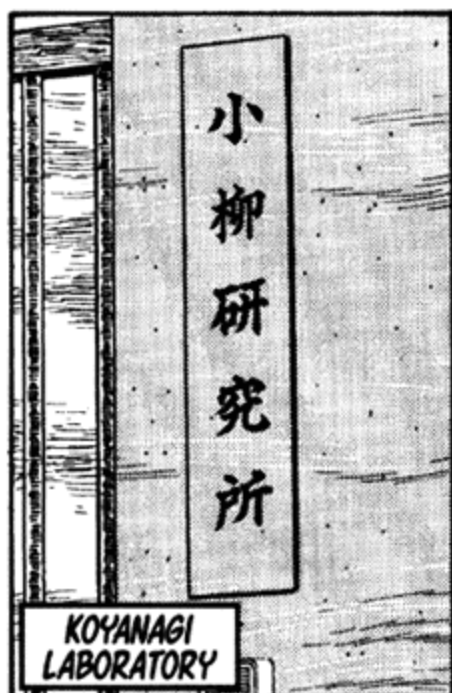 小柳研究所
KOYANAGI
LABORATORY